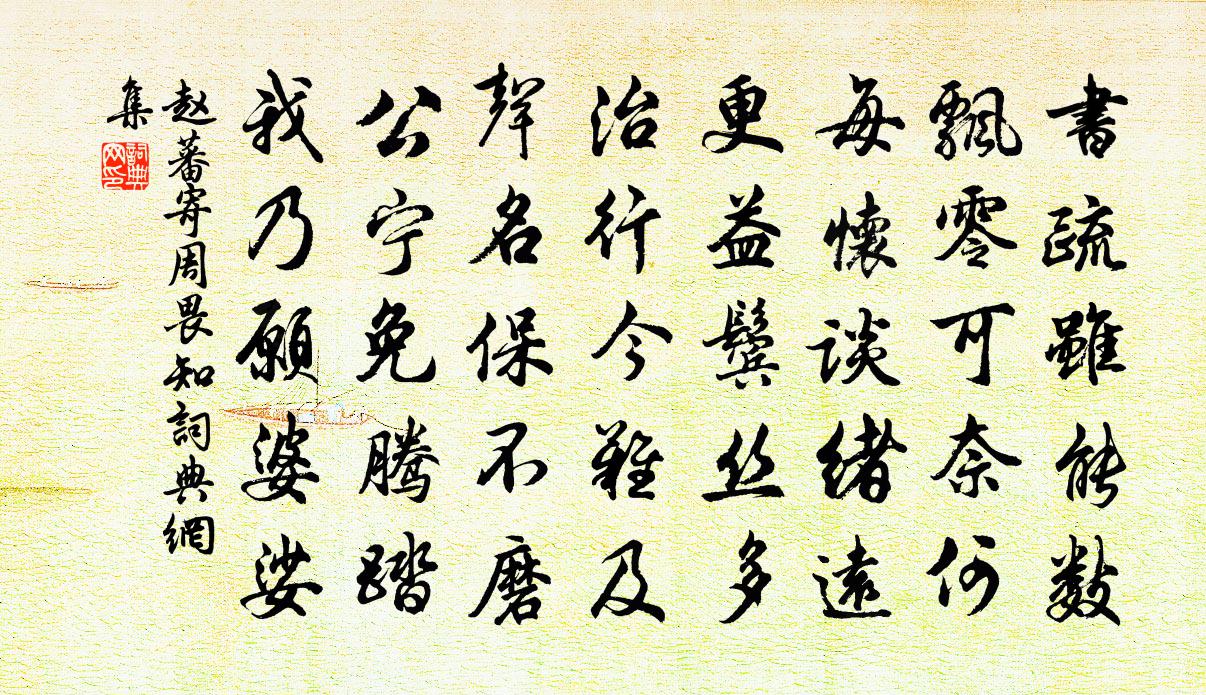 書疏雖能數
飄零可奈何
每懷談緒遠
更益鬢丝多
治行今難及
聲名保不磨
公宁免騰踏
我乃願婆娑
赵蕃寄周畏知詞典網
集
詞典网印